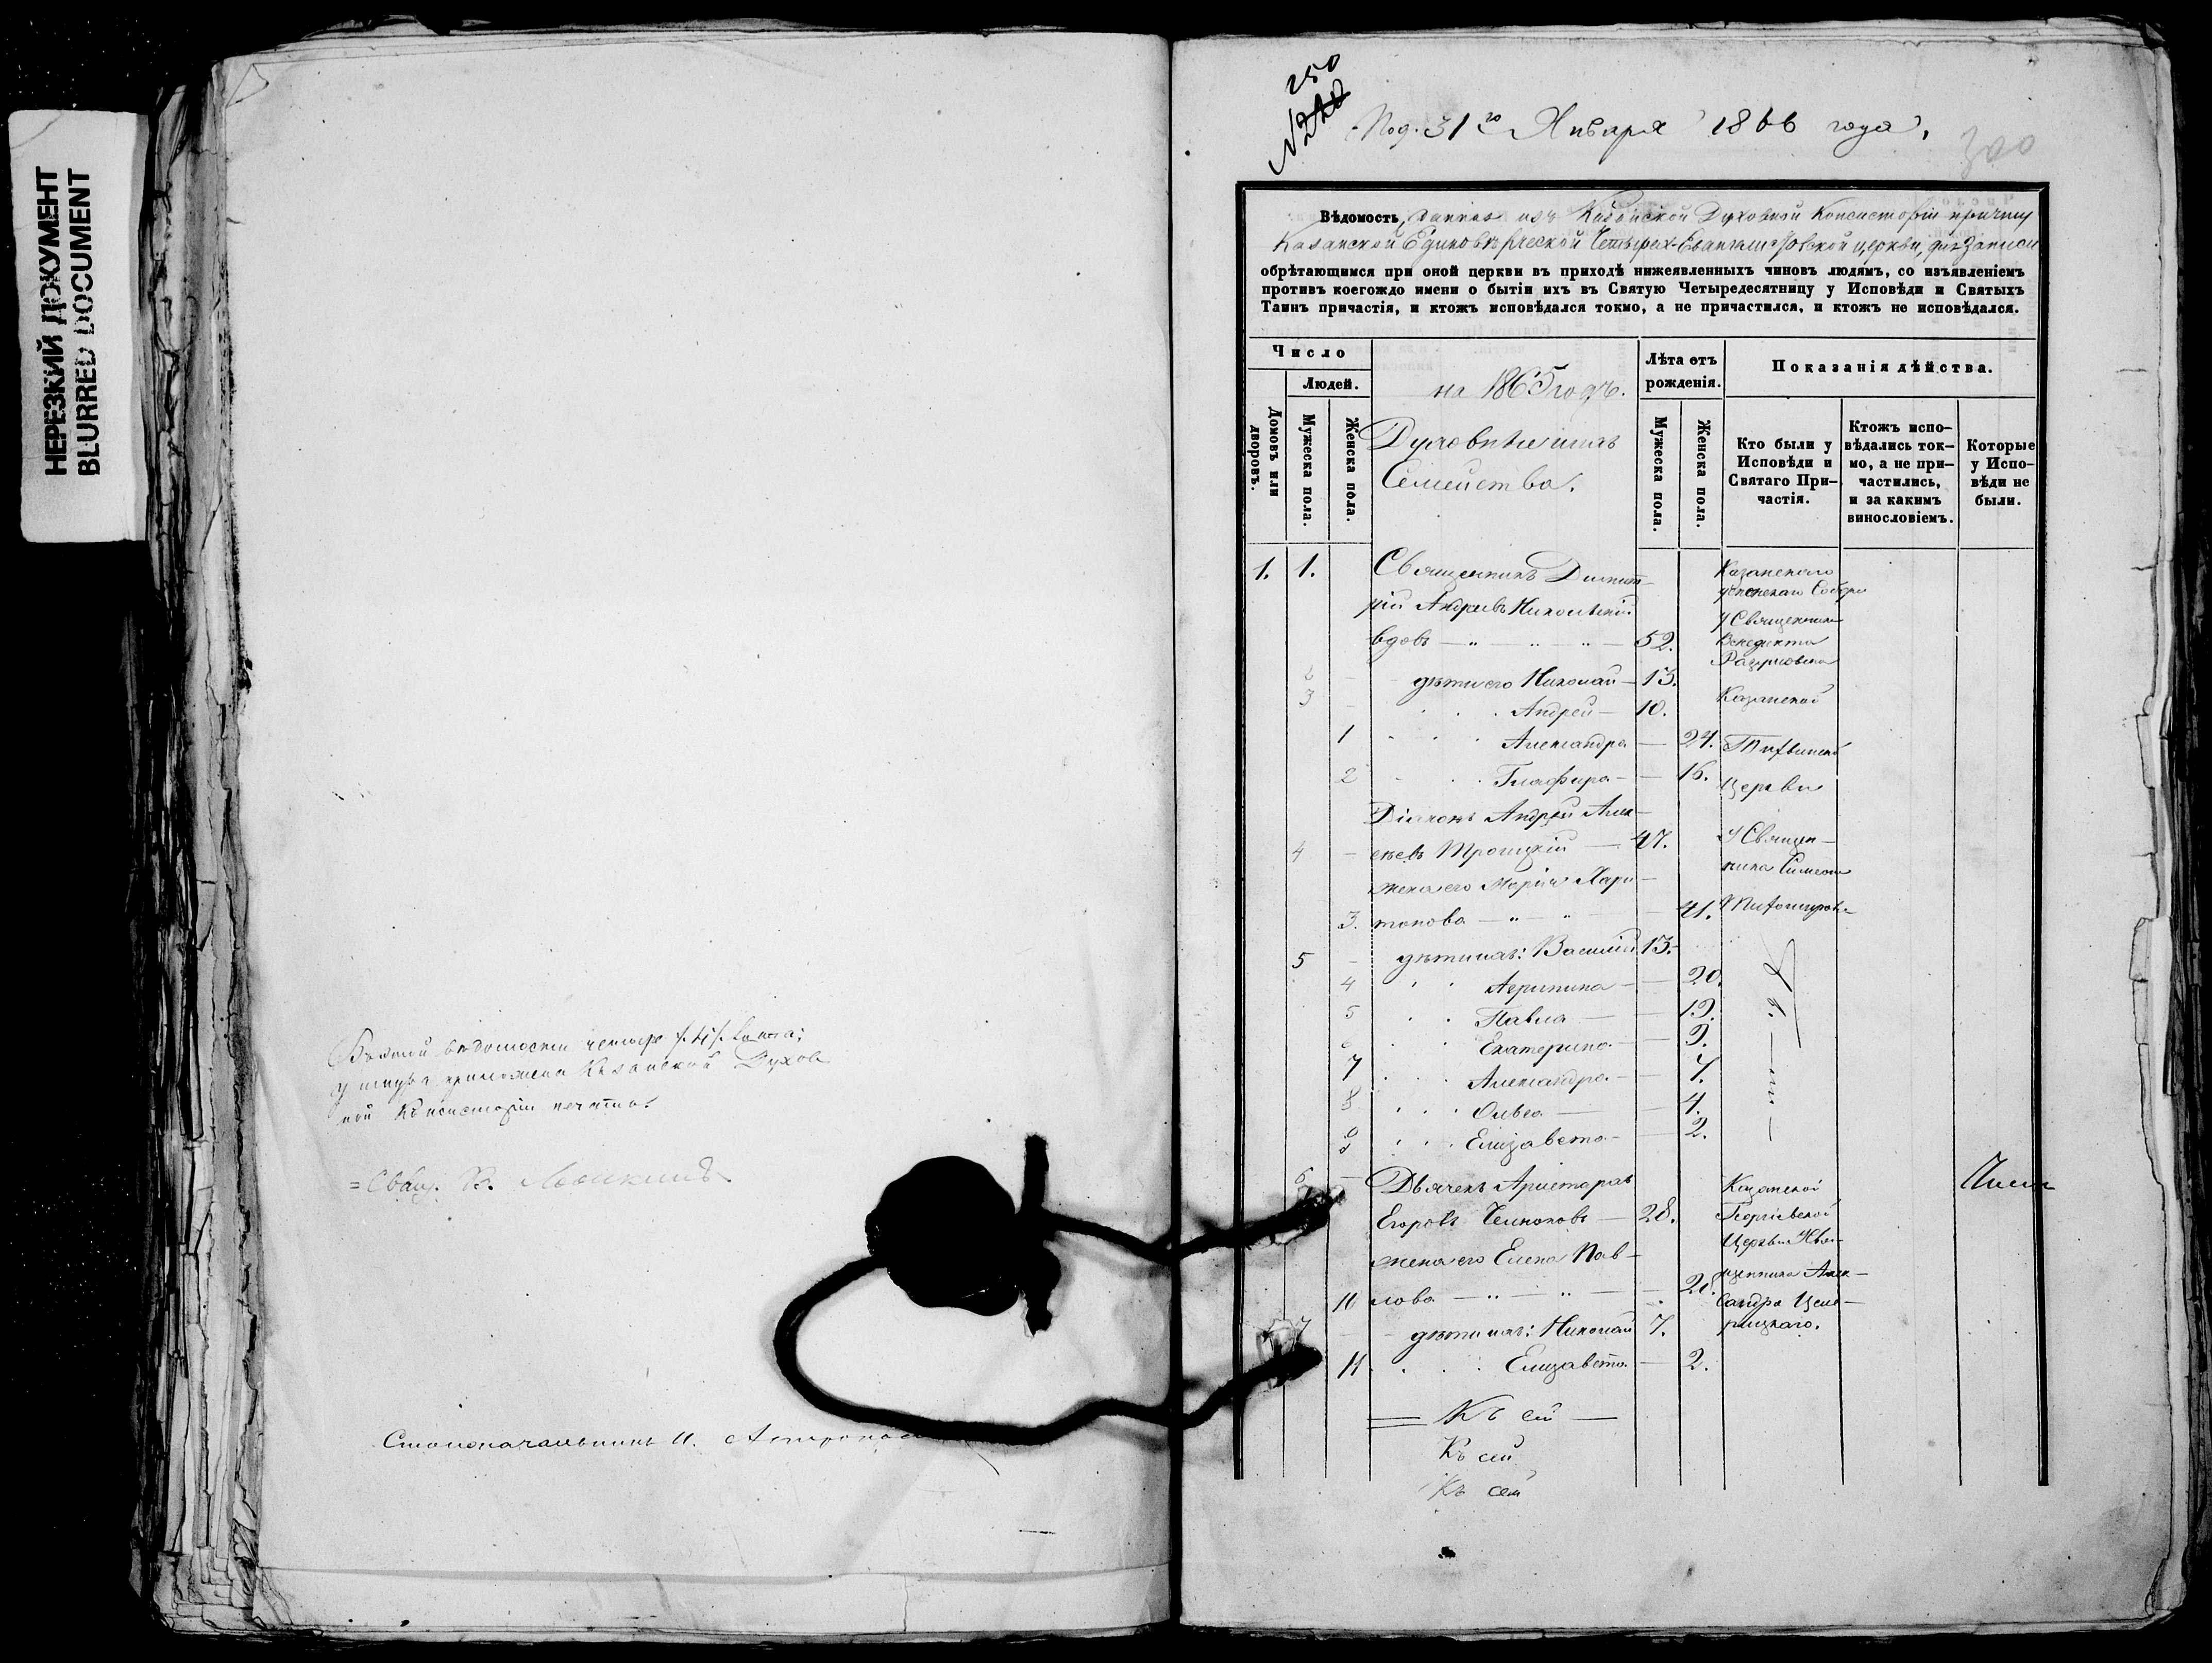 НЕРЕЗКИЙ ДОКУМЕНТ
BLURRED DOCUMENT
ведомости четыре /4/ листа;
приложена Казанской Духов
ной Консисторіи печать.
=Свящ.
Столоначальникъ И.
250
№
Под. 31го Января 1866 года.
300
Вѣдомость, данная изъ Казанской Духовной Консисторіи причту
Казанской Единовѣрческой Четырех-Евангелистовской церкви, для записи
обрѣтающимся при оной церкви въ приходѣ нижеявленныхъ чиновъ людямъ, со изъявленіемъ
противъ коегождо имени о бытіи ихъ въ Святую Четыредесятницу у Исповѣди и Святыхъ
Таинъ причастія, и ктожъ исповѣдался токмо, а не причастился, и ктожъ не исповѣдался.
Число
Людей.
Домовъ или дворовъ.
Мужеска пола.
Женска пола.
на 1865 годъ.
Духовные и ихъ
Семейства.
Лѣта отъ
рожденія.
Мужеска пола.
Женска пола.
Показанія дѣйства.
Кто были у
Исповѣди и
Святаго При-
частія.
Ктожъ испо-
вѣдались ток-
мо, а не при-
частились,
и за какимъ
винословіемъ.
Которые
у Испо-
вѣди не
были.
1. 1. Священникъ Димит-
рій Андреевъ Никольскій
вдовъ — " — " — " — 52.
2 дѣти его Николай — 13.
3 Андрей — 10.
1 Александра — 24.
2 Глафира — 16.
Діаконъ Андрей Алек-
4 сѣевъ Троицкій — 47.
жена его Марія Хари-
3. тонова — " — " — 41.
5 дѣти ихъ: Василій 13.
4 Агрипина — 20.
5 Павла — 19.
Екатерина — 9.
7 Александра — 7.
8 Ольга — 4.
9 Елизавета — 2.
6 Дьячекъ Аристархъ
Егоровъ — 28.
жена его Елена Пав-
10 лова — " — " — 28.
7 дѣти ихъ: Николай 7.
11 Елизавета — 2.
Казанскаго
Собора
у Священника
Венедикта
Казанской
Тихвинской
Церкви
у Священ-
ника Симеона
Казанской
Георгіевской
Церкви у Свя-
щенника Алек-
сандра
= Къ сей —
Къ сей
Къ сей